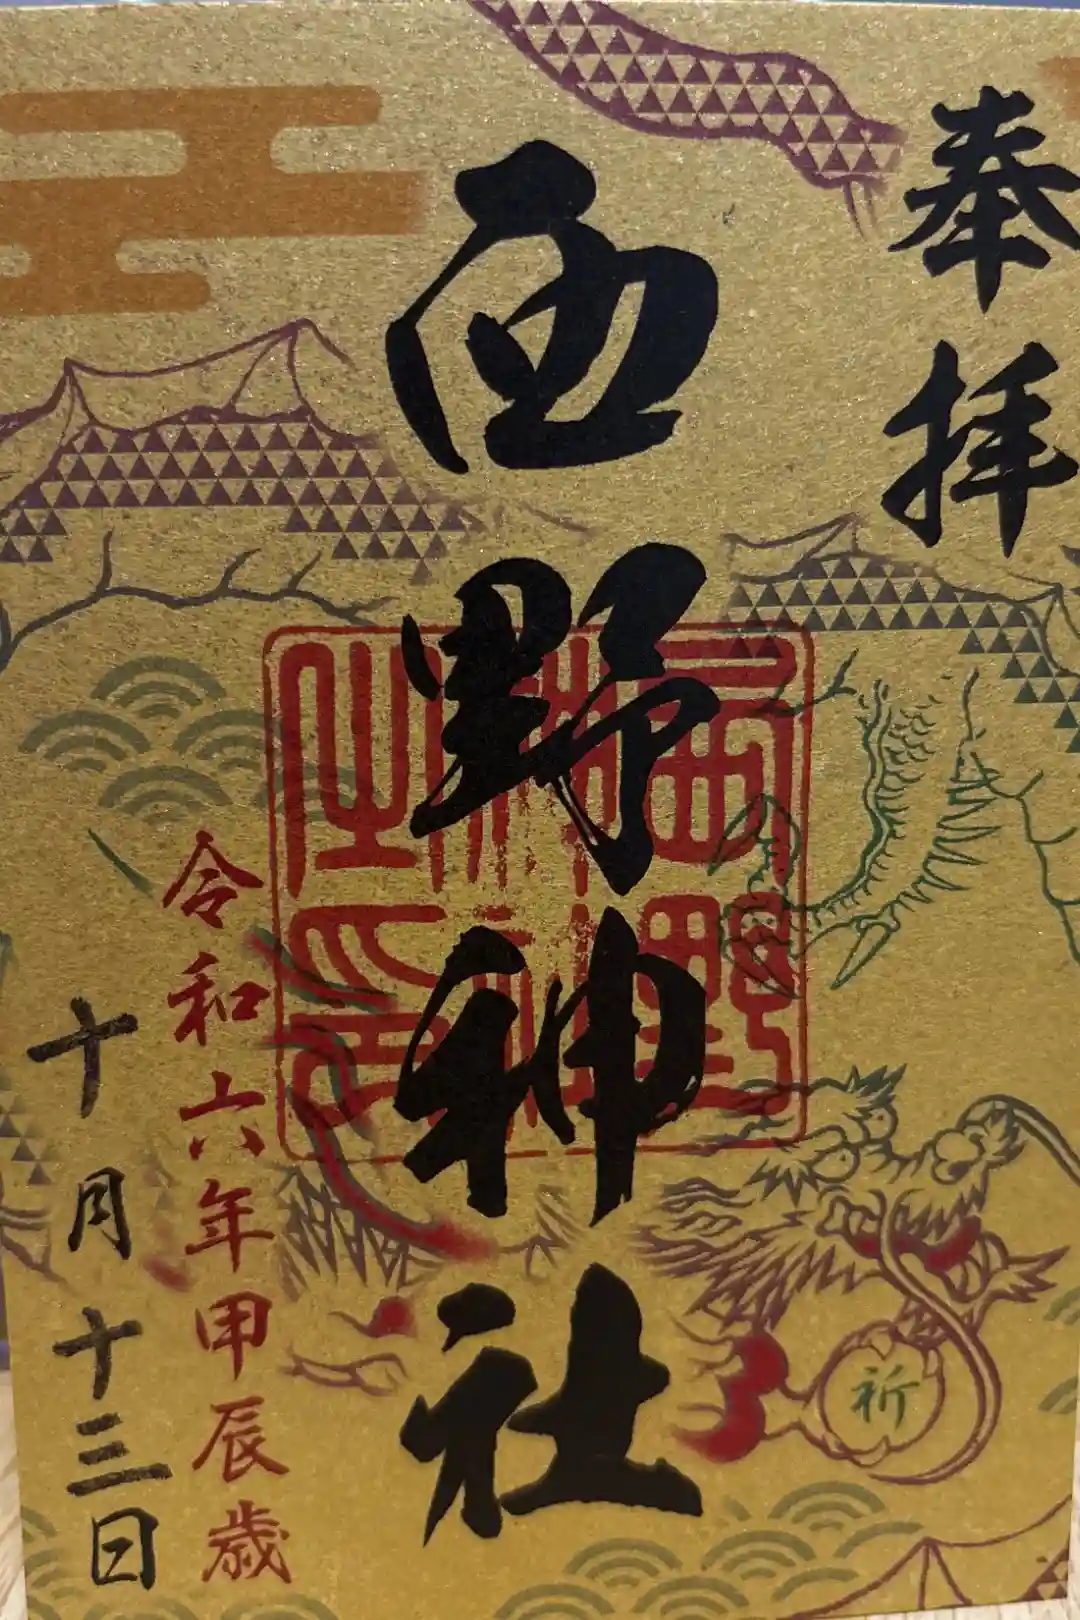 奉拝
西野神社
西野神社之印
令和六年甲辰歳
十月十三日
祈